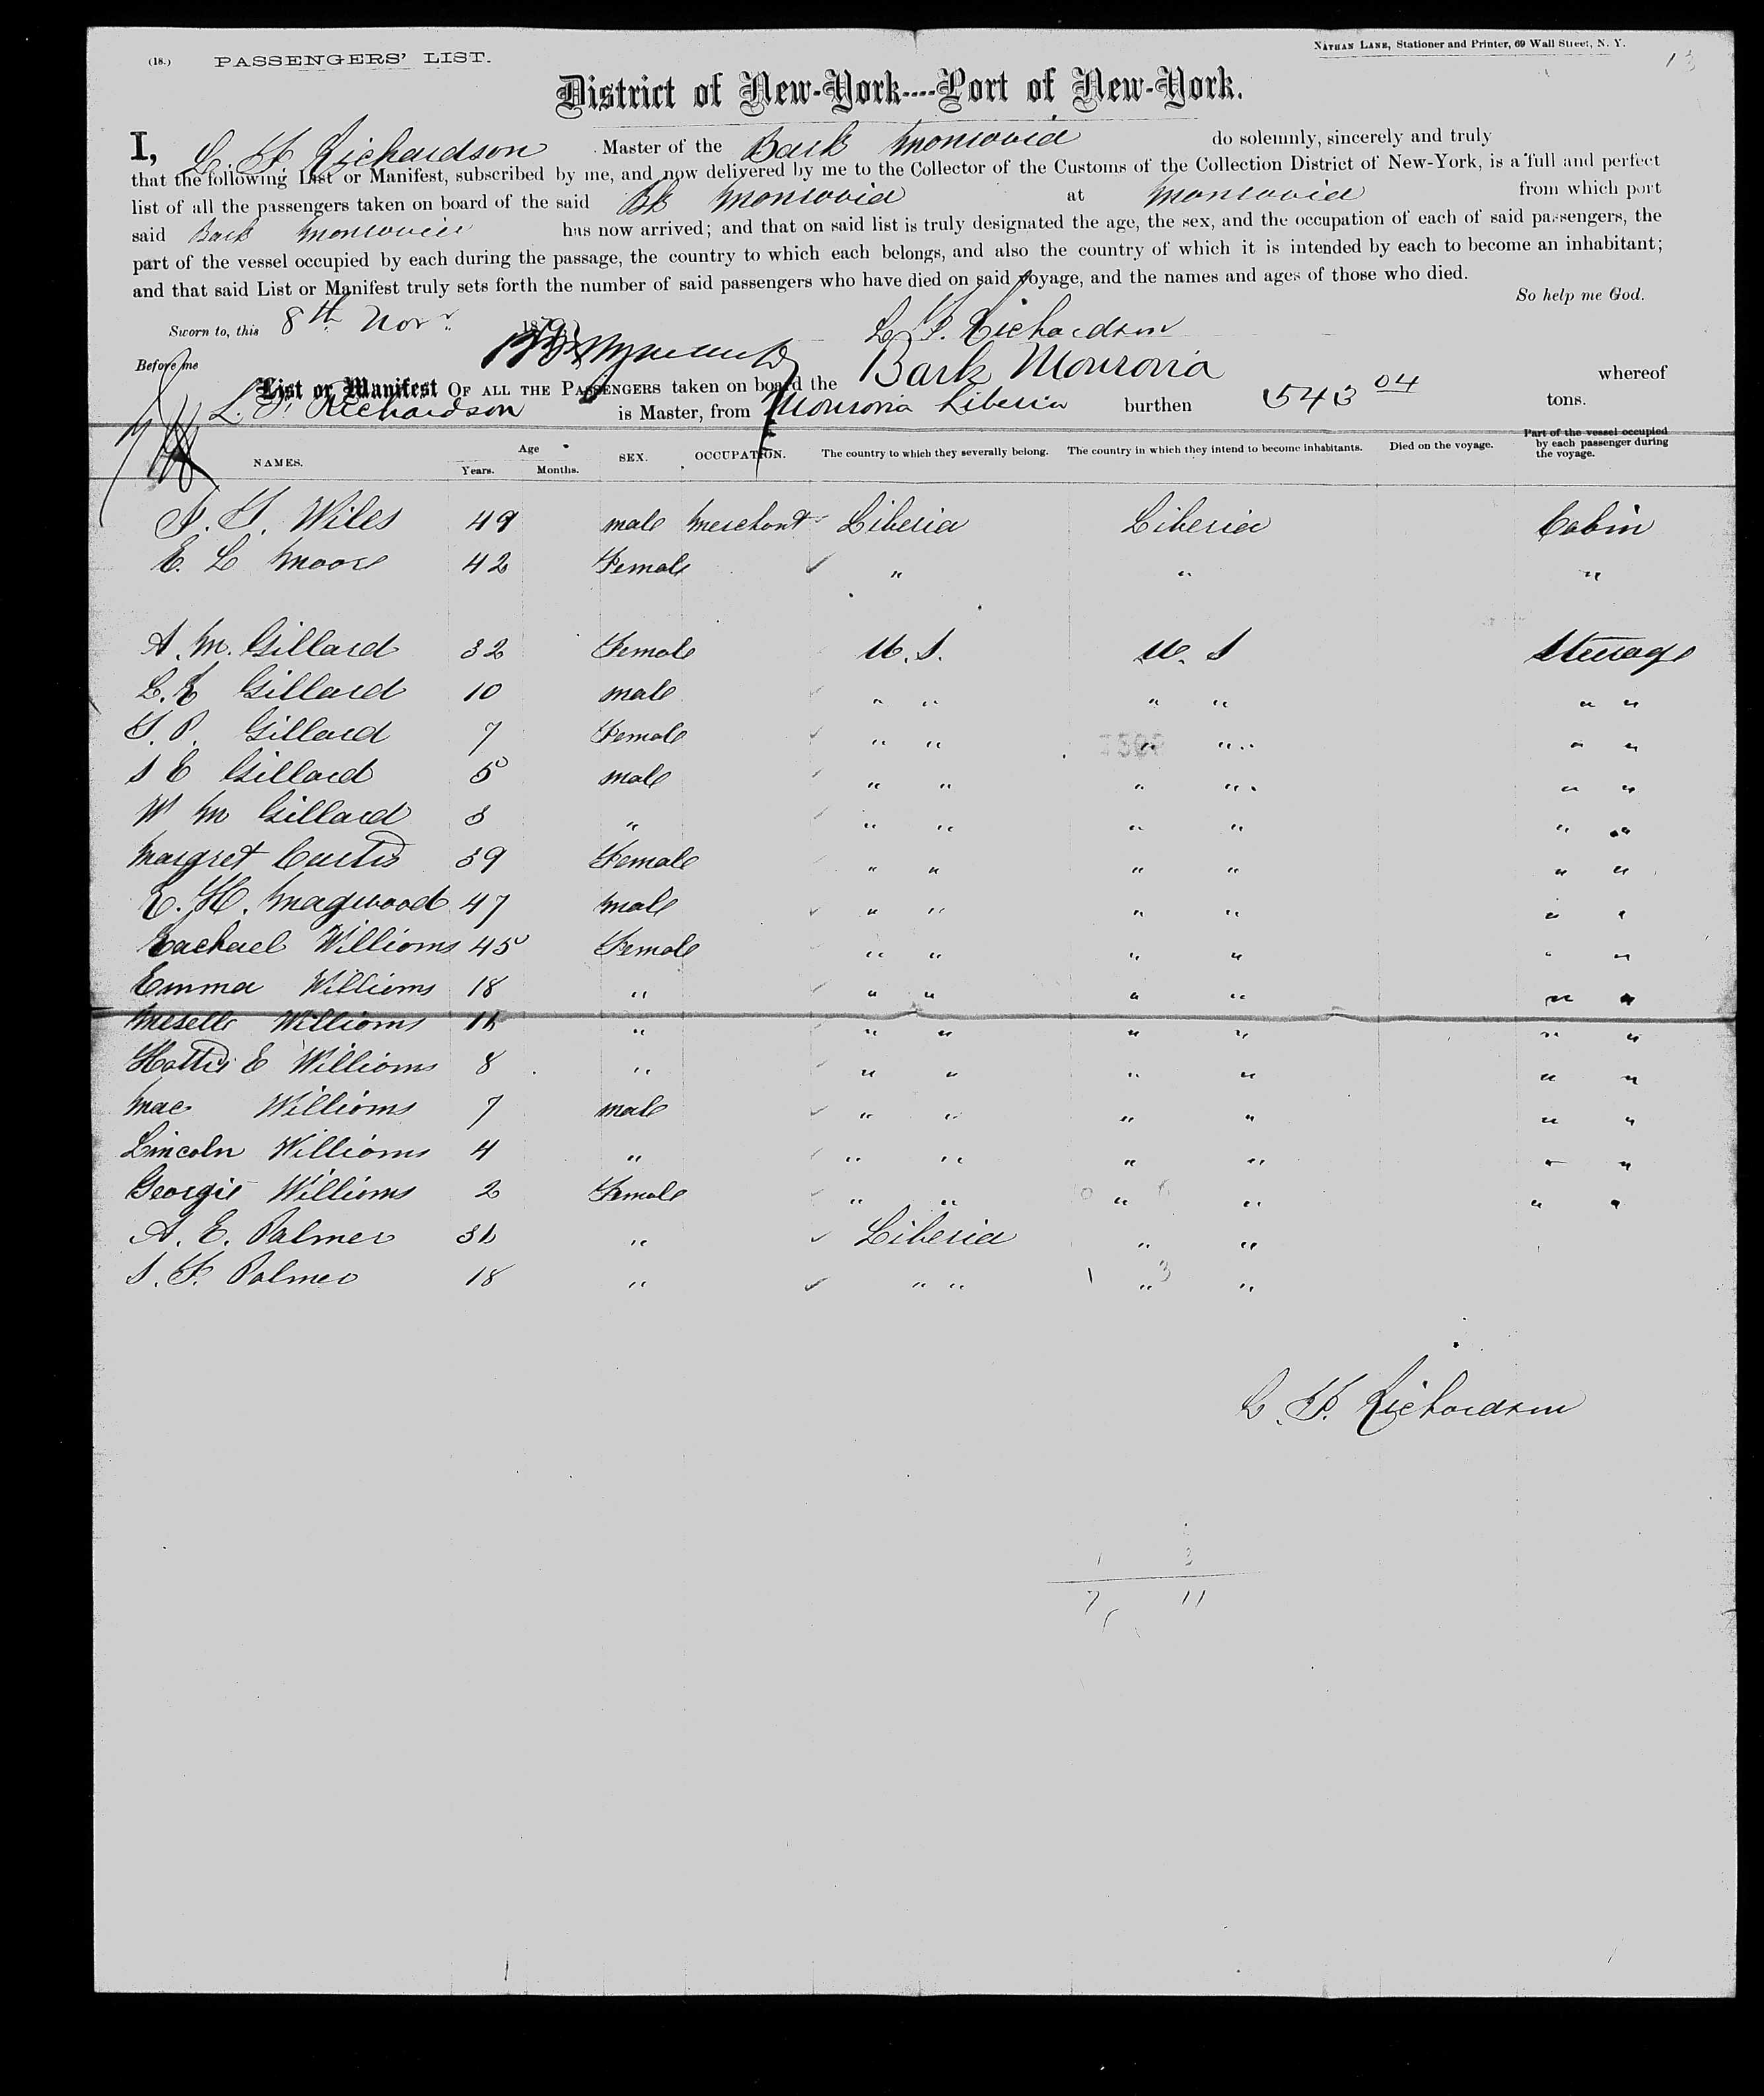 (18.) PASSENGERS' LIST.
NATHAN LANE, Stationer and Printer, 69 Wall Street, N. Y.
13
District of New-York----Port of New-York.
I, L. F. Richardson Master of the Bark Monrovia do solemnly, sincerely and truly
that the following List or Manifest, subscribed by me, and now delivered by me to the Collector of the Customs of the Collection District of New-York, is a full and perfect
list of all the passengers taken on board of the said Bk Monrovia at Monrovia from which port
said Bark Monrovia has now arrived; and that on said list is truly designated the age, the sex, and the occupation of each of said passengers, the
part of the vessel occupied by each during the passage, the country to which each belongs, and also the country of which it is intended by each to become an inhabitant;
and that said List or Manifest truly sets forth the number of said passengers who have died on said voyage, and the names and ages of those who died.
So help me God.
Sworn to, this 8th Novr. 187
L. F. Richardson
Before me
List or Manifest OF ALL THE PASSENGERS taken on board the Bark Monrovia whereof
L. F. Richardson is Master, from Monrovia Liberia burthen 543 04 tons.
NAMES. Age Years. Months. SEX. OCCUPATION. The country to which they severally belong. The country in which they intend to become inhabitants. Died on the voyage. Part of the vessel occupied by each passenger during the voyage.
Wiles 49 male merchant Liberia Liberia Cabin
E. L Moore 42 Female " " "
A. M. Gillard 32 Female U. S. U. S Steerage
L. E Gillard 10 male " " " " " "
P. Gillard 7 Female " " " " " "
S E Gillard 5 male " " " " " "
W M Gillard 3 " " " " " " "
Margret Curtis 39 Female " " " " " "
E. H. Magwood 47 male " " " " " "
Rachael Williams 45 Female " " " " " "
Emma Williams 18 " " " " " " "
Williams 16 " " " " " " "
Hattie E Williams 8 " " " " " " "
Mac Williams 7 male " " " " " "
Lincoln Williams 4 " " " " " " "
Georgie Williams 2 Female " " " " " "
A. E. Palmer 36 " Liberia " "
S. F. Palmer 18 " " " " "
1 3
L. F. Richardson
1 3
7 11